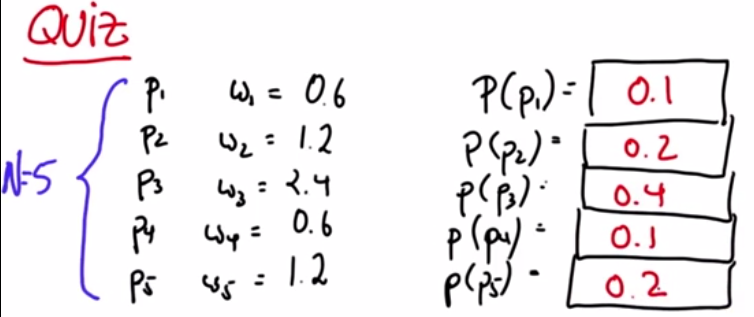 QUIZ
p1 ω1 = 0.6 P(p1) = 0.1
p2 ω2 = 1.2 P(p2) = 0.2
N=5 p3 ω3 = 2.4 P(p3) = 0.4
p4 ω4 = 0.6 P(p4) = 0.1
p5 ω5 = 1.2 P(p5) = 0.2